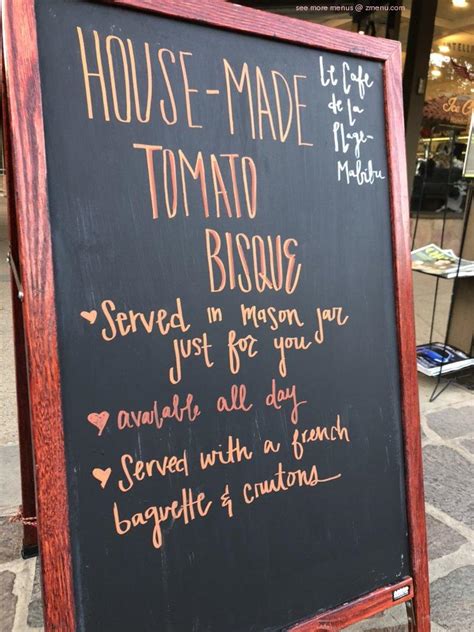 see more menus @ zmenu.com
HOUSE-MADE
TOMATO
BISQUE
Le Cafe
de la
Plage-
Malibu
♥ Served in mason jar
just for you
♥ available all day
♥ Served with a french
baguette & croutons